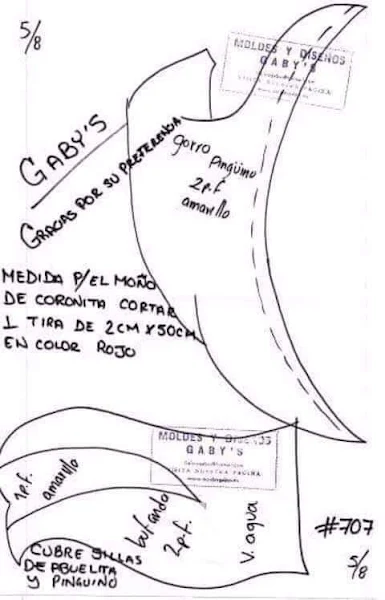 5/8
MOLDES Y DISEÑOS
GABY'S
GABY'S
GRACIAS POR SU PREFERENCIA
gorro
Pingüino
2 p.f.
amarillo
MEDIDA P/EL MOÑO
DE CORONITA CORTAR
1 TIRA DE 2CM X 50CM
EN COLOR ROJO
MOLDES Y DISEÑOS
GABY'S
VISITA NUESTRA PAGINA
amarillo
bufanda
2 p.f.
V. agua
#707
5/8
CUBRE SILLAS
DE ABUELITA
Y PINGUINO